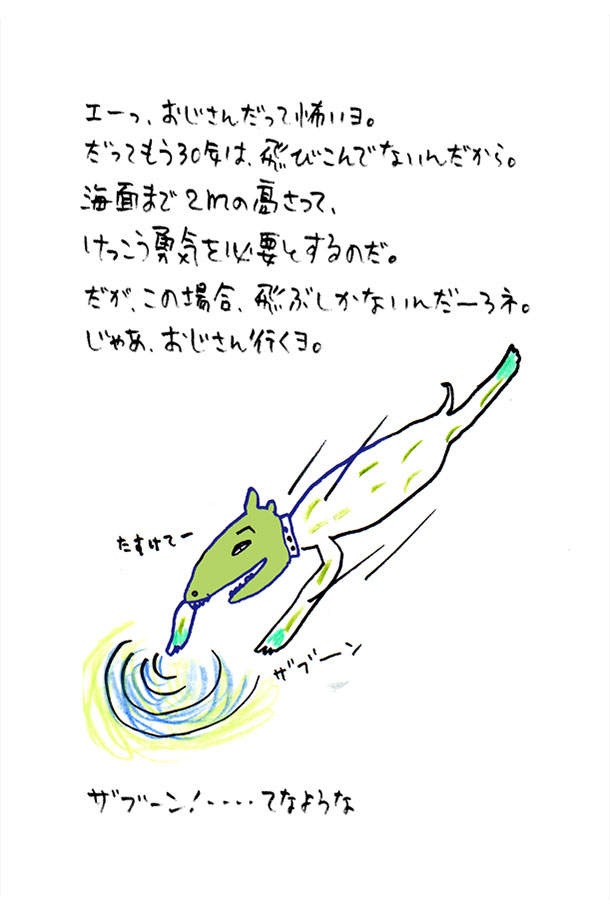 エーっ、おじさんだって怖いヨ。
だってもう30年は、飛びこんでないんだから。
海面まで2mの高さって、
けっこう勇気を必要とするのだ。
だが、この場合、飛ぶしかないんだーろネ。
じゃあ、おじさん行くヨ。
たすけてー
ザブーン
ザブーン!‥‥てなような